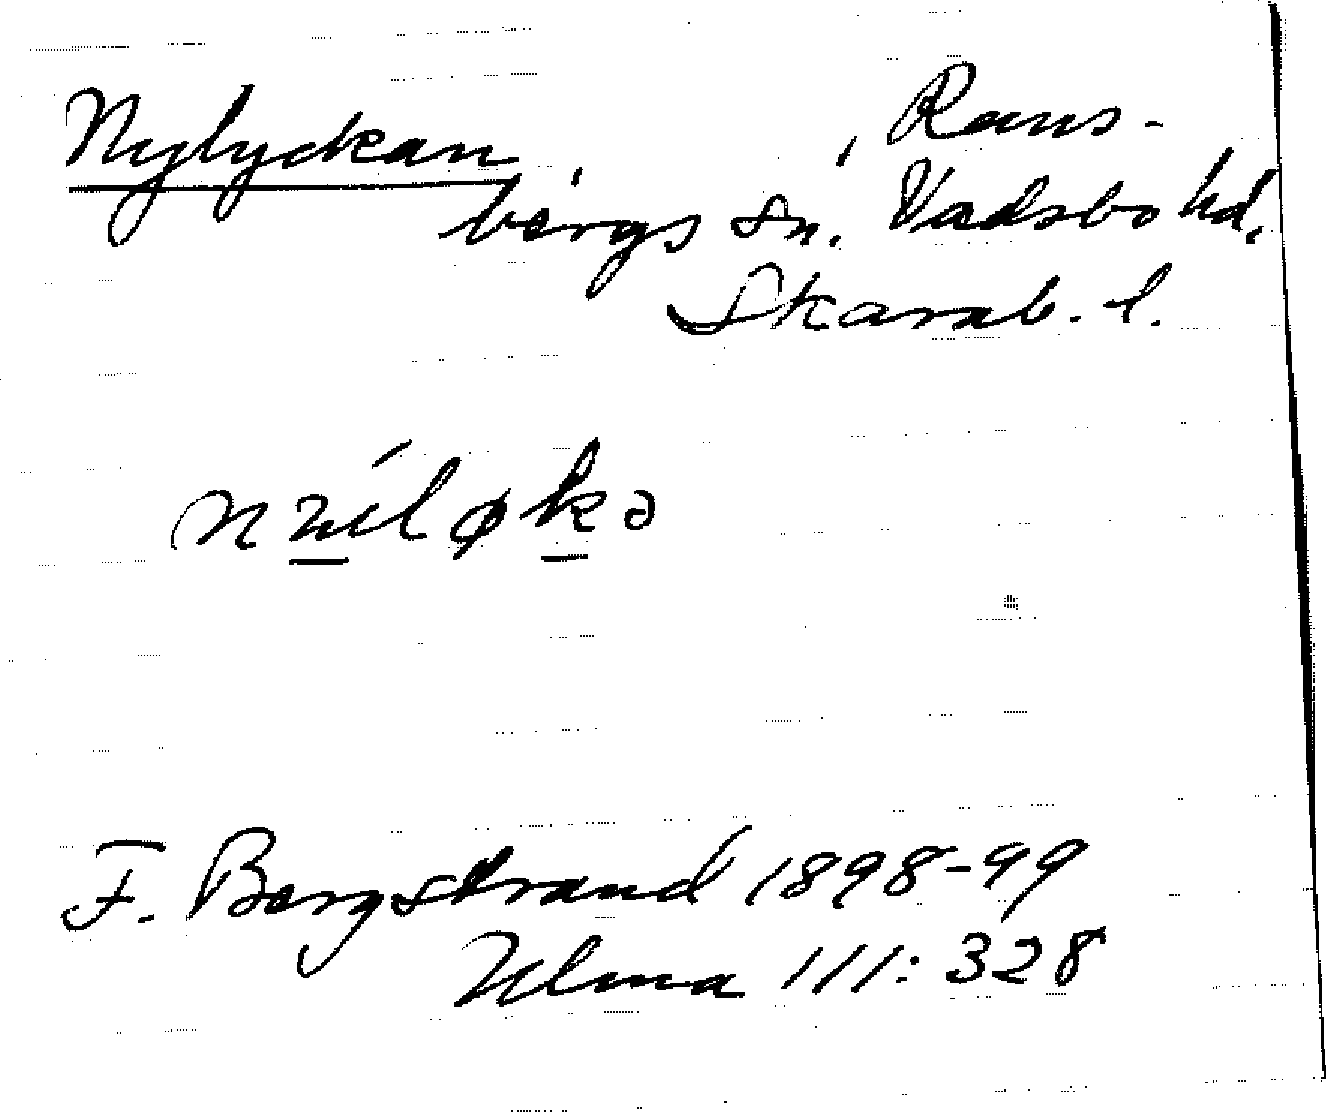 Nylyckan, Rans-
bergs sn. Vadsbo hd,
Skarab. l.
F. Bergstrand 1898-99
Ulma 111: 328